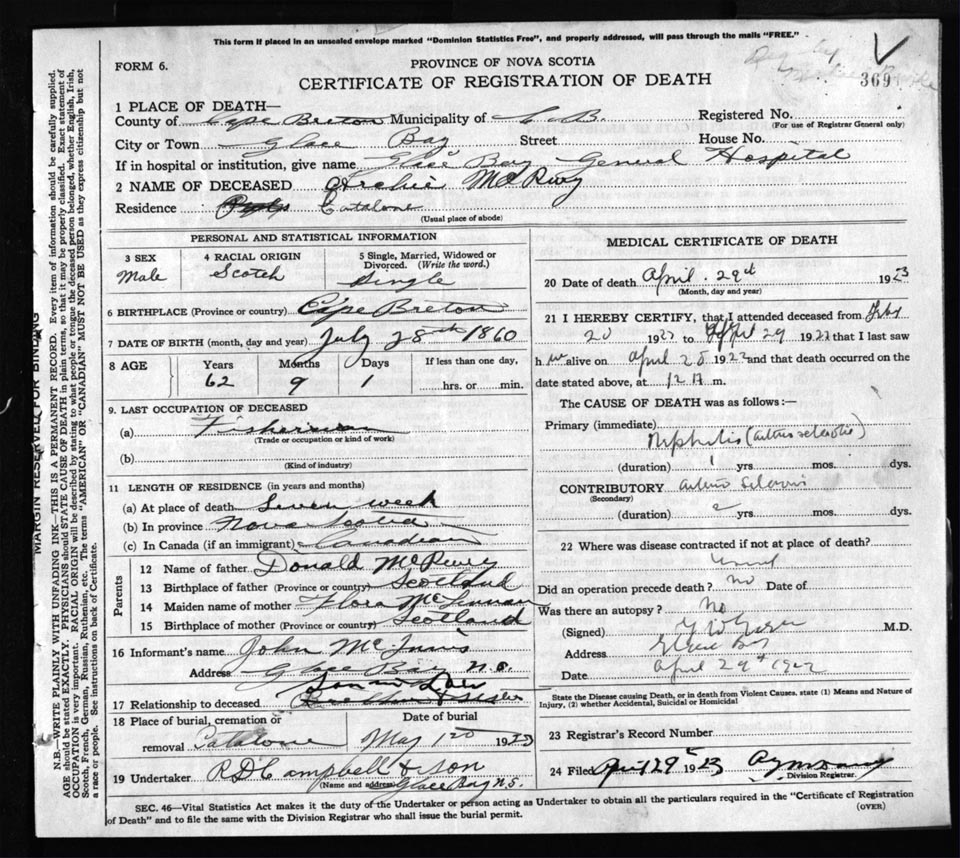 This form if placed in an unsealed envelope marked "Dominion Statistics Free", and properly addressed, will pass through the mails "FREE."
FORM 6.
PROVINCE OF NOVA SCOTIA
CERTIFICATE OF REGISTRATION OF DEATH
369
1 PLACE OF DEATH—
County of Cape Breton Municipality of C. B. Registered No.
(For use of Registrar General only)
City or Town Glace Bay Street House No.
If in hospital or institution, give name Glace Bay General Hospital
2 NAME OF DECEASED Archie
Residence Catalone
(Usual place of abode)
PERSONAL AND STATISTICAL INFORMATION
3 SEX
Male
4 RACIAL ORIGIN
Scotch
5 Single, Married, Widowed or Divorced. (Write the word.)
Single
6 BIRTHPLACE (Province or country) Cape Breton
7 DATE OF BIRTH (month, day and year) July 28th 1860
8 AGE Years Months Days If less than one day,
62 9 1 hrs. or min.
9. LAST OCCUPATION OF DECEASED
(a) Fisherman
(Trade or occupation or kind of work)
(b)
(Kind of industry)
11 LENGTH OF RESIDENCE (in years and months)
(a) At place of death Seven week
(b) In province Nova Scotia
(c) In Canada (if an immigrant) Canadian
Parents
12 Name of father Donald
13 Birthplace of father (Province or country) Scotland
14 Maiden name of mother Flora McLennan
15 Birthplace of mother (Province or country) Scotland
16 Informant's name John McInnis
Address Glace Bay N.S.
17 Relationship to deceased
18 Place of burial, cremation or removal Catalone
Date of burial
May 1st 1923
19 Undertaker R D Campbell & Son
(Name and address) Glace Bay N.S.
MEDICAL CERTIFICATE OF DEATH
20 Date of death April 29th 1923
(Month, day and year)
21 I HEREBY CERTIFY, that I attended deceased from Feby
20 1922 to April 29 1922 that I last saw
h im alive on April 28 1922 and that death occurred on the
date stated above, at 12 A m.
The CAUSE OF DEATH was as follows:—
Primary (immediate)
Nephritis (arterio sclerotic)
(duration) 1 yrs. mos. dys.
CONTRIBUTORY arterio Sclerosis
(Secondary)
(duration) 2 yrs. mos. dys.
22 Where was disease contracted if not at place of death?
Did an operation precede death? No Date of
Was there an autopsy? No
(Signed) M.D.
Address Glace Bay
Date April 29th 1922
State the Disease causing Death, or in death from Violent Causes, state (1) Means and Nature of
Injury, (2) whether Accidental, Suicidal or Homicidal
23 Registrar's Record Number
24 Filed April 29 1923
Division Registrar.
SEC. 46—Vital Statistics Act makes it the duty of the Undertaker or person acting as Undertaker to obtain all the particulars required in the "Certificate of Registration
of Death" and to file the same with the Division Registrar who shall issue the burial permit.
(OVER)
MARGIN RESERVED FOR BINDING
N.B.—WRITE PLAINLY WITH UNFADING INK—THIS IS A PERMANENT RECORD. Every item of information should be carefully supplied.
AGE should be stated EXACTLY. PHYSICIANS should STATE CAUSE OF DEATH in plain terms, so that it may be properly classified. Exact statement of
OCCUPATION is very important. RACIAL ORIGIN will be described by stating to what people or tongue the deceased person belonged, whether English, Irish,
Scotch, French, German, Russian, Ruthenian, etc. The terms "AMERICAN" OR "CANADIAN" MUST NOT BE USED as they express citizenship but not
a race or people. See instructions on back of Certificate.